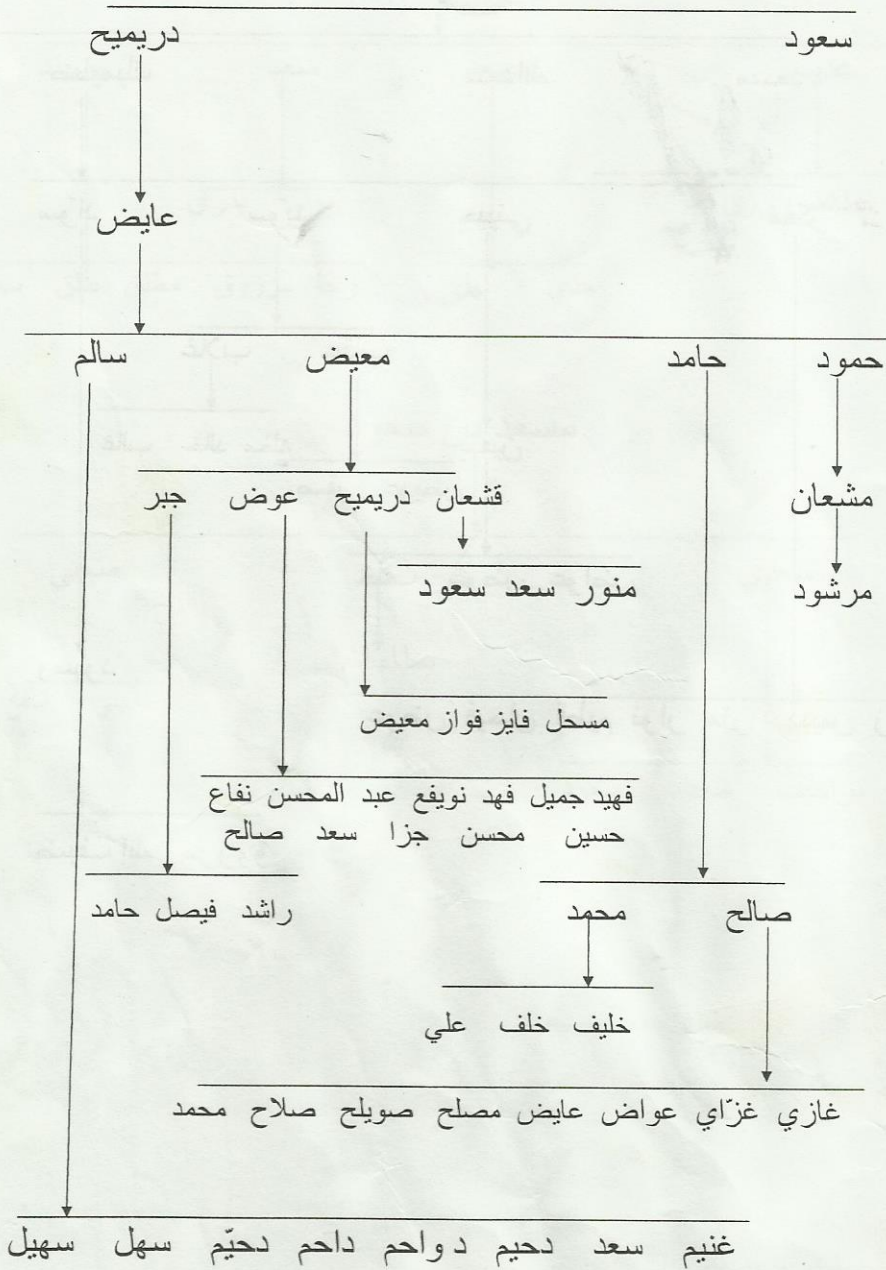 سعود دريميح
عايض
حمود حامد معيض سالم
قشعان دريميح عوض جبر
مشعان
منور سعد سعود
مرشود
مسحل فايز فواز معيض
فهيد جميل فهد نويفع عبد المحسن نفاع
حسين محسن جزا سعد صالح
راشد فيصل حامد
صالح محمد
خليف خلف علي
غازي غزّاي عواض عايض مصلح صويلح صلاح محمد
غنيم سعد دحيم دواحم داحم دحيّم سهل سهيل